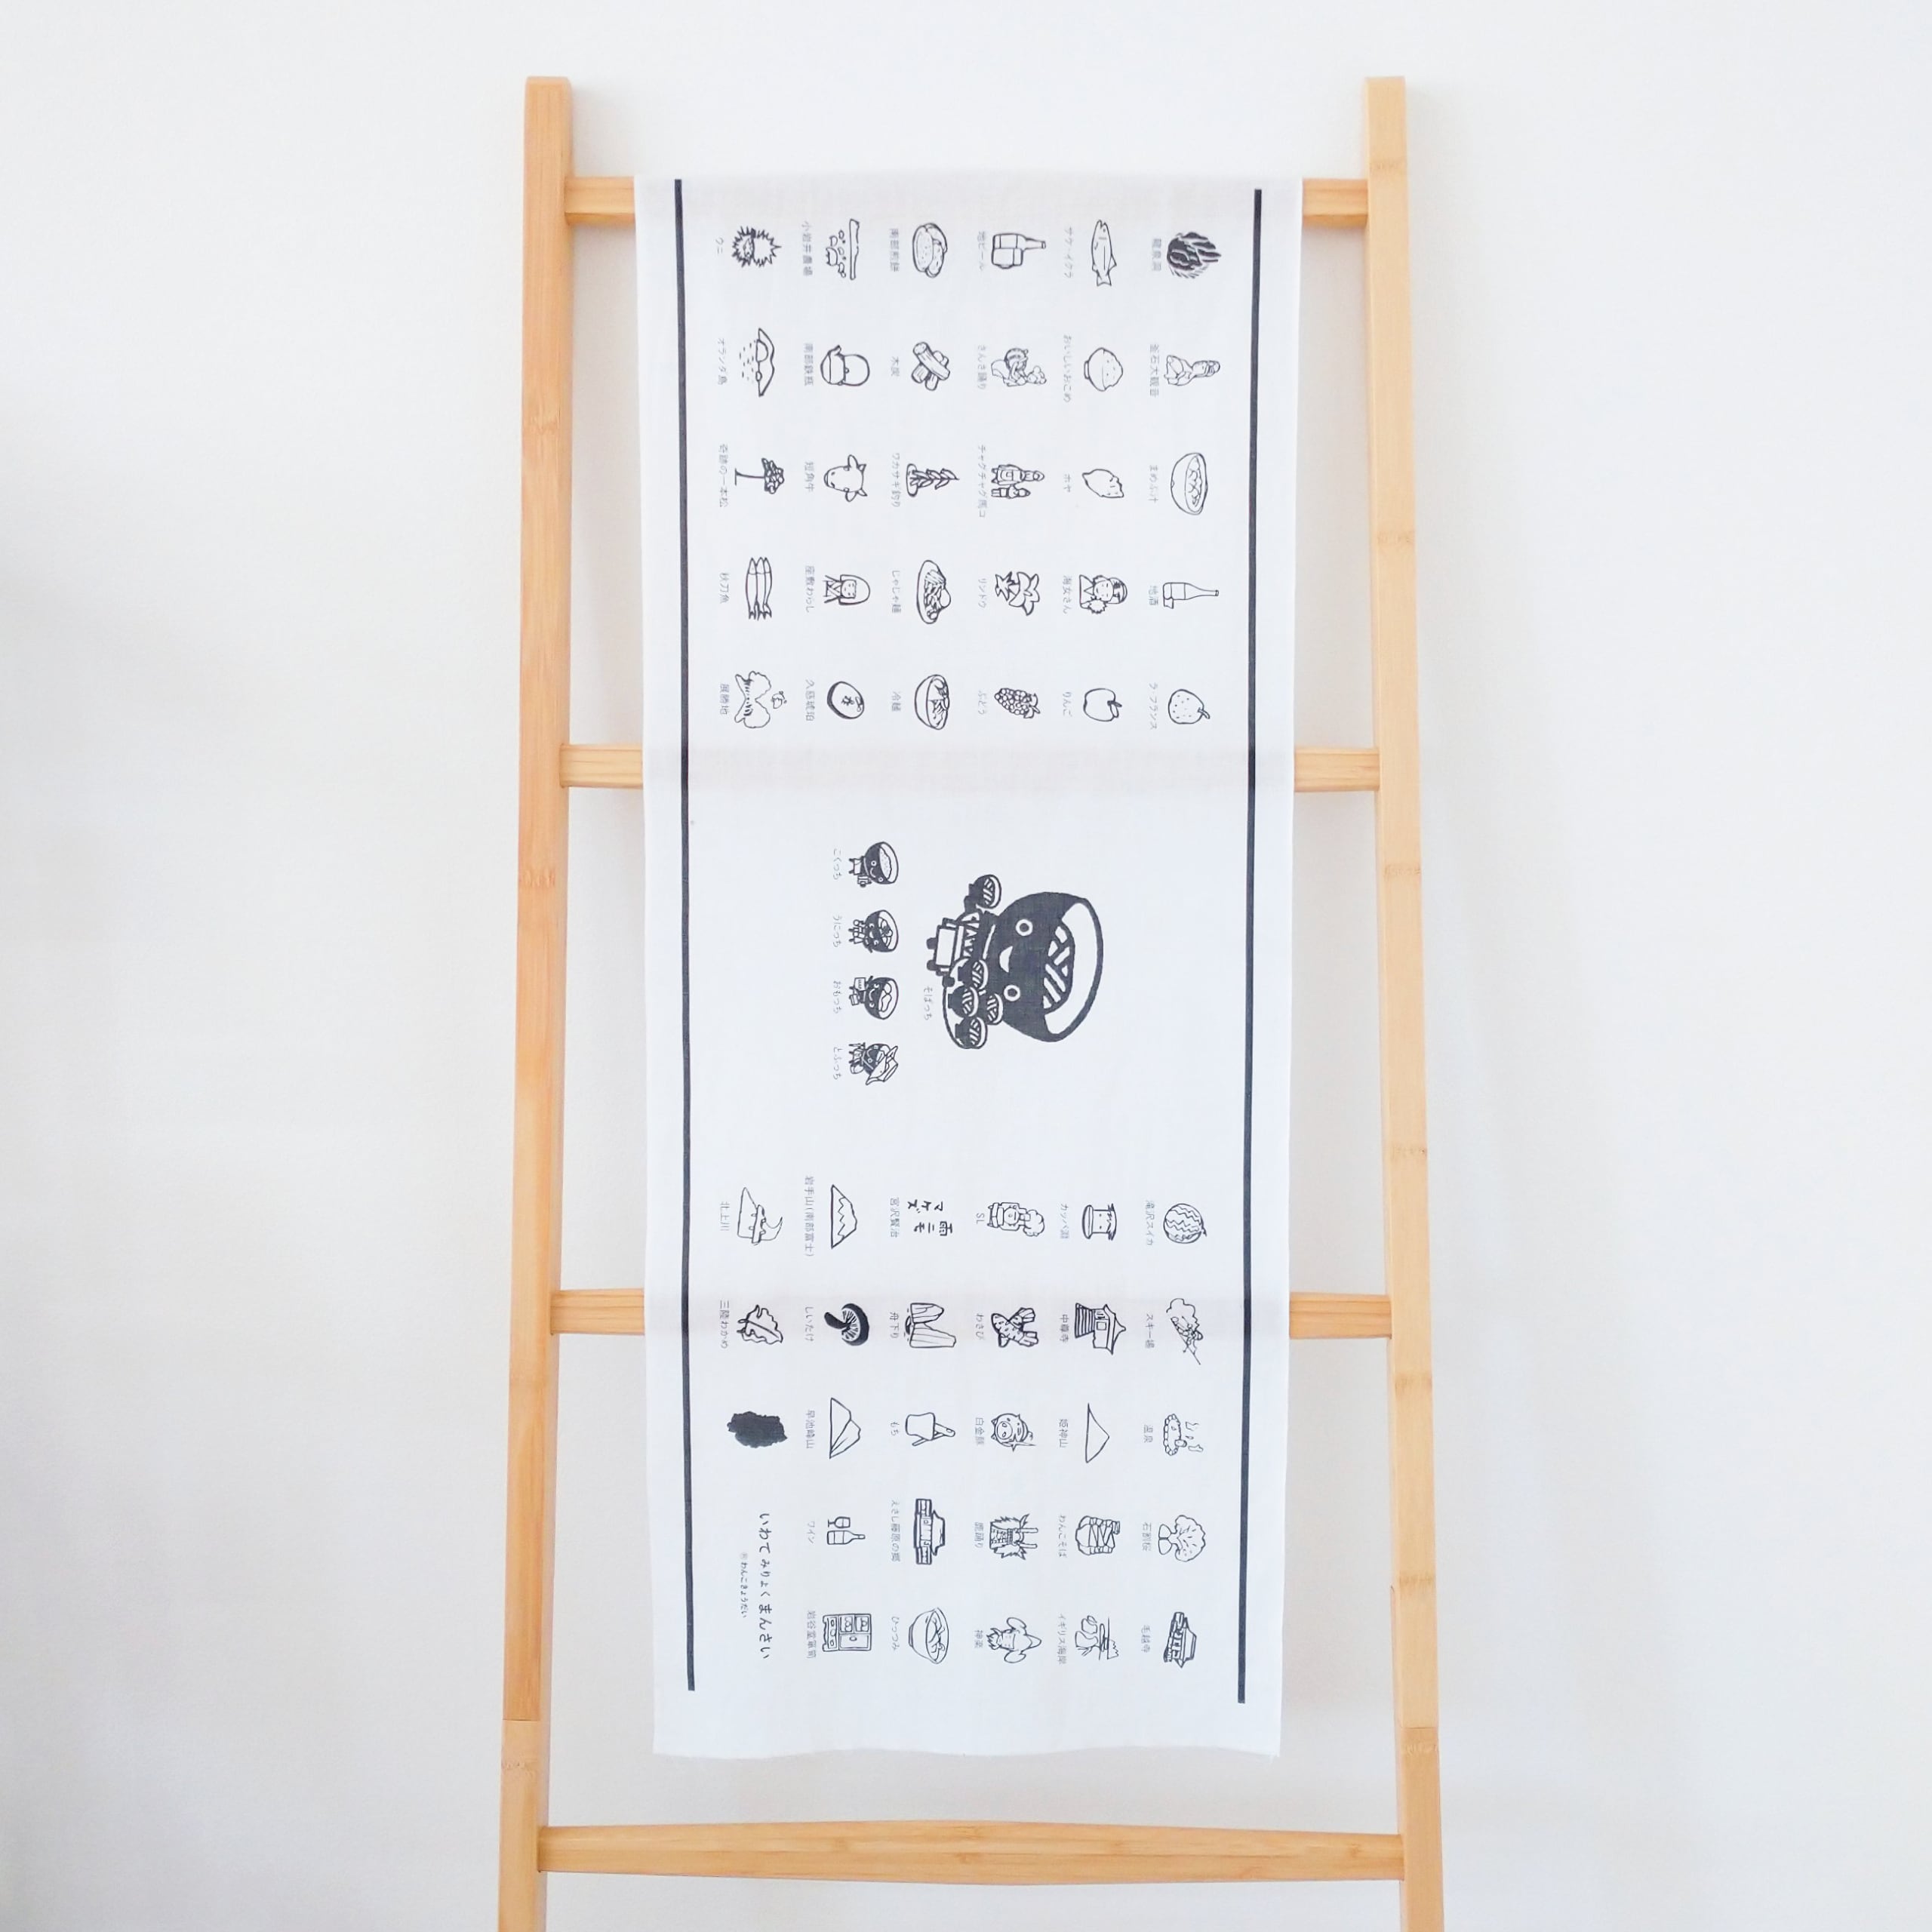 龍泉洞
釜石大観音
まめぶ汁
地酒
ラ フランス
サケ・イクラ
おいしいおこめ
ホヤ
海女さん
りんご
地ビール
さんさ踊り
チャグチャグ馬コ
リンドウ
ぶどう
南部煎餅
木炭
ワカサギ釣り
じゃじゃ麺
冷麺
小岩井農場
南部鉄瓶
短角牛
座敷わらし
久慈琥珀
ウニ
オランダ島
奇跡の一本松
秋刀魚
展勝地
そばっち
こくっち
うにっち
おもっち
とふっち
滝沢スイカ
スキー場
温泉
石割桜
毛越寺
カッパ淵
中尊寺
姫神山
わんこそば
イギリス海岸
SL
わさび
白金豚
鹿踊り
神楽
雨ニモ
マケズ
宮沢賢治
舟下り
もち
えさし藤原の郷
ひっつみ
岩手山(南部富士)
しいたけ
早池峰山
ワイン
岩谷堂箪笥
北上川
三陸わかめ
いわてみりょくまんさい
わんこきょうだい